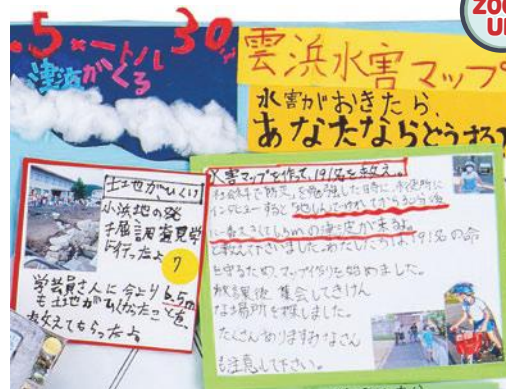 ZOOM
UP
.5メートル 30
津波がくる
雲浜水害マップ
水害がおきたら、
あなたならどうする?
土地がひくい
小浜地の発
掘調査見学
に行ったよ
7
学芸員さんに今より6.5m
も土地がひくかったことを
教えてもらったよ
水害マップを作って、191名を救え。
社会科で防災を勉強した時に、市役所に
インタビューすると「地しんにおわれてから30分後
に一番大きくて1.5mの津波が来る。」
と教えて下さいました。わたしたちは、191名の命
を守るため、マップ作りを始めました。
放課後、集合してきけん
な場所を探しました。
たくさんありますみなさん
も注意して下さい。